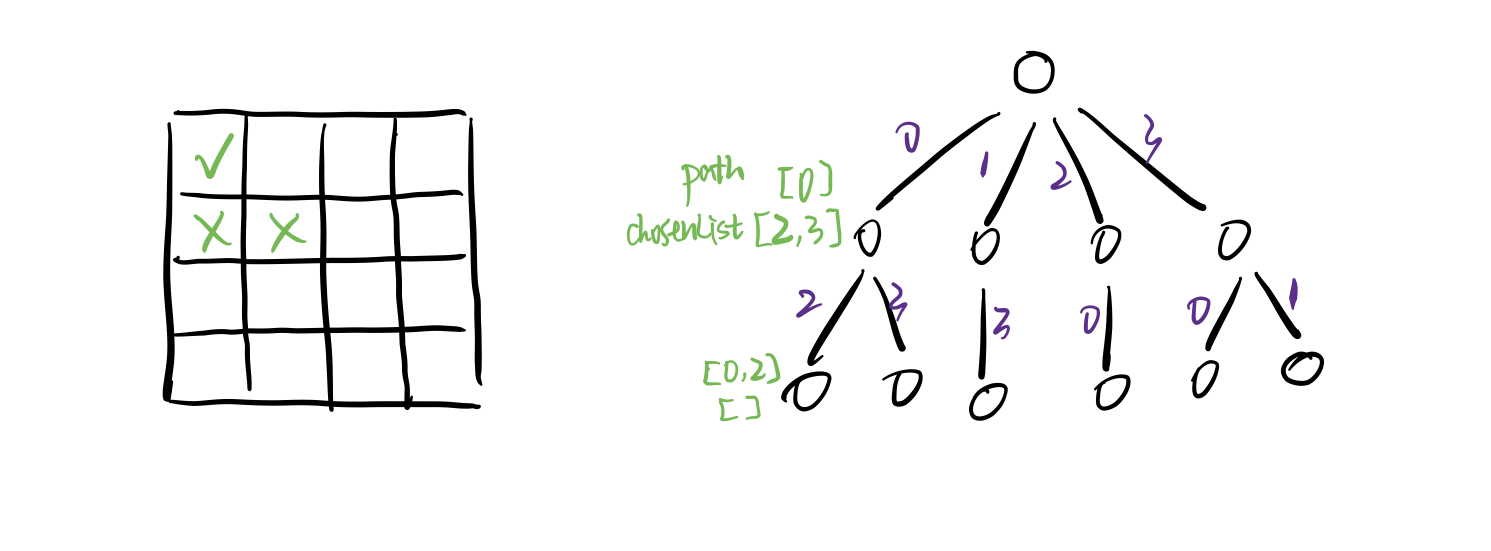 ✓
× ×
0 1 2 3
path [0]
chosenList [2,3]
2 3 3 0 0 1
[0,2]
[]